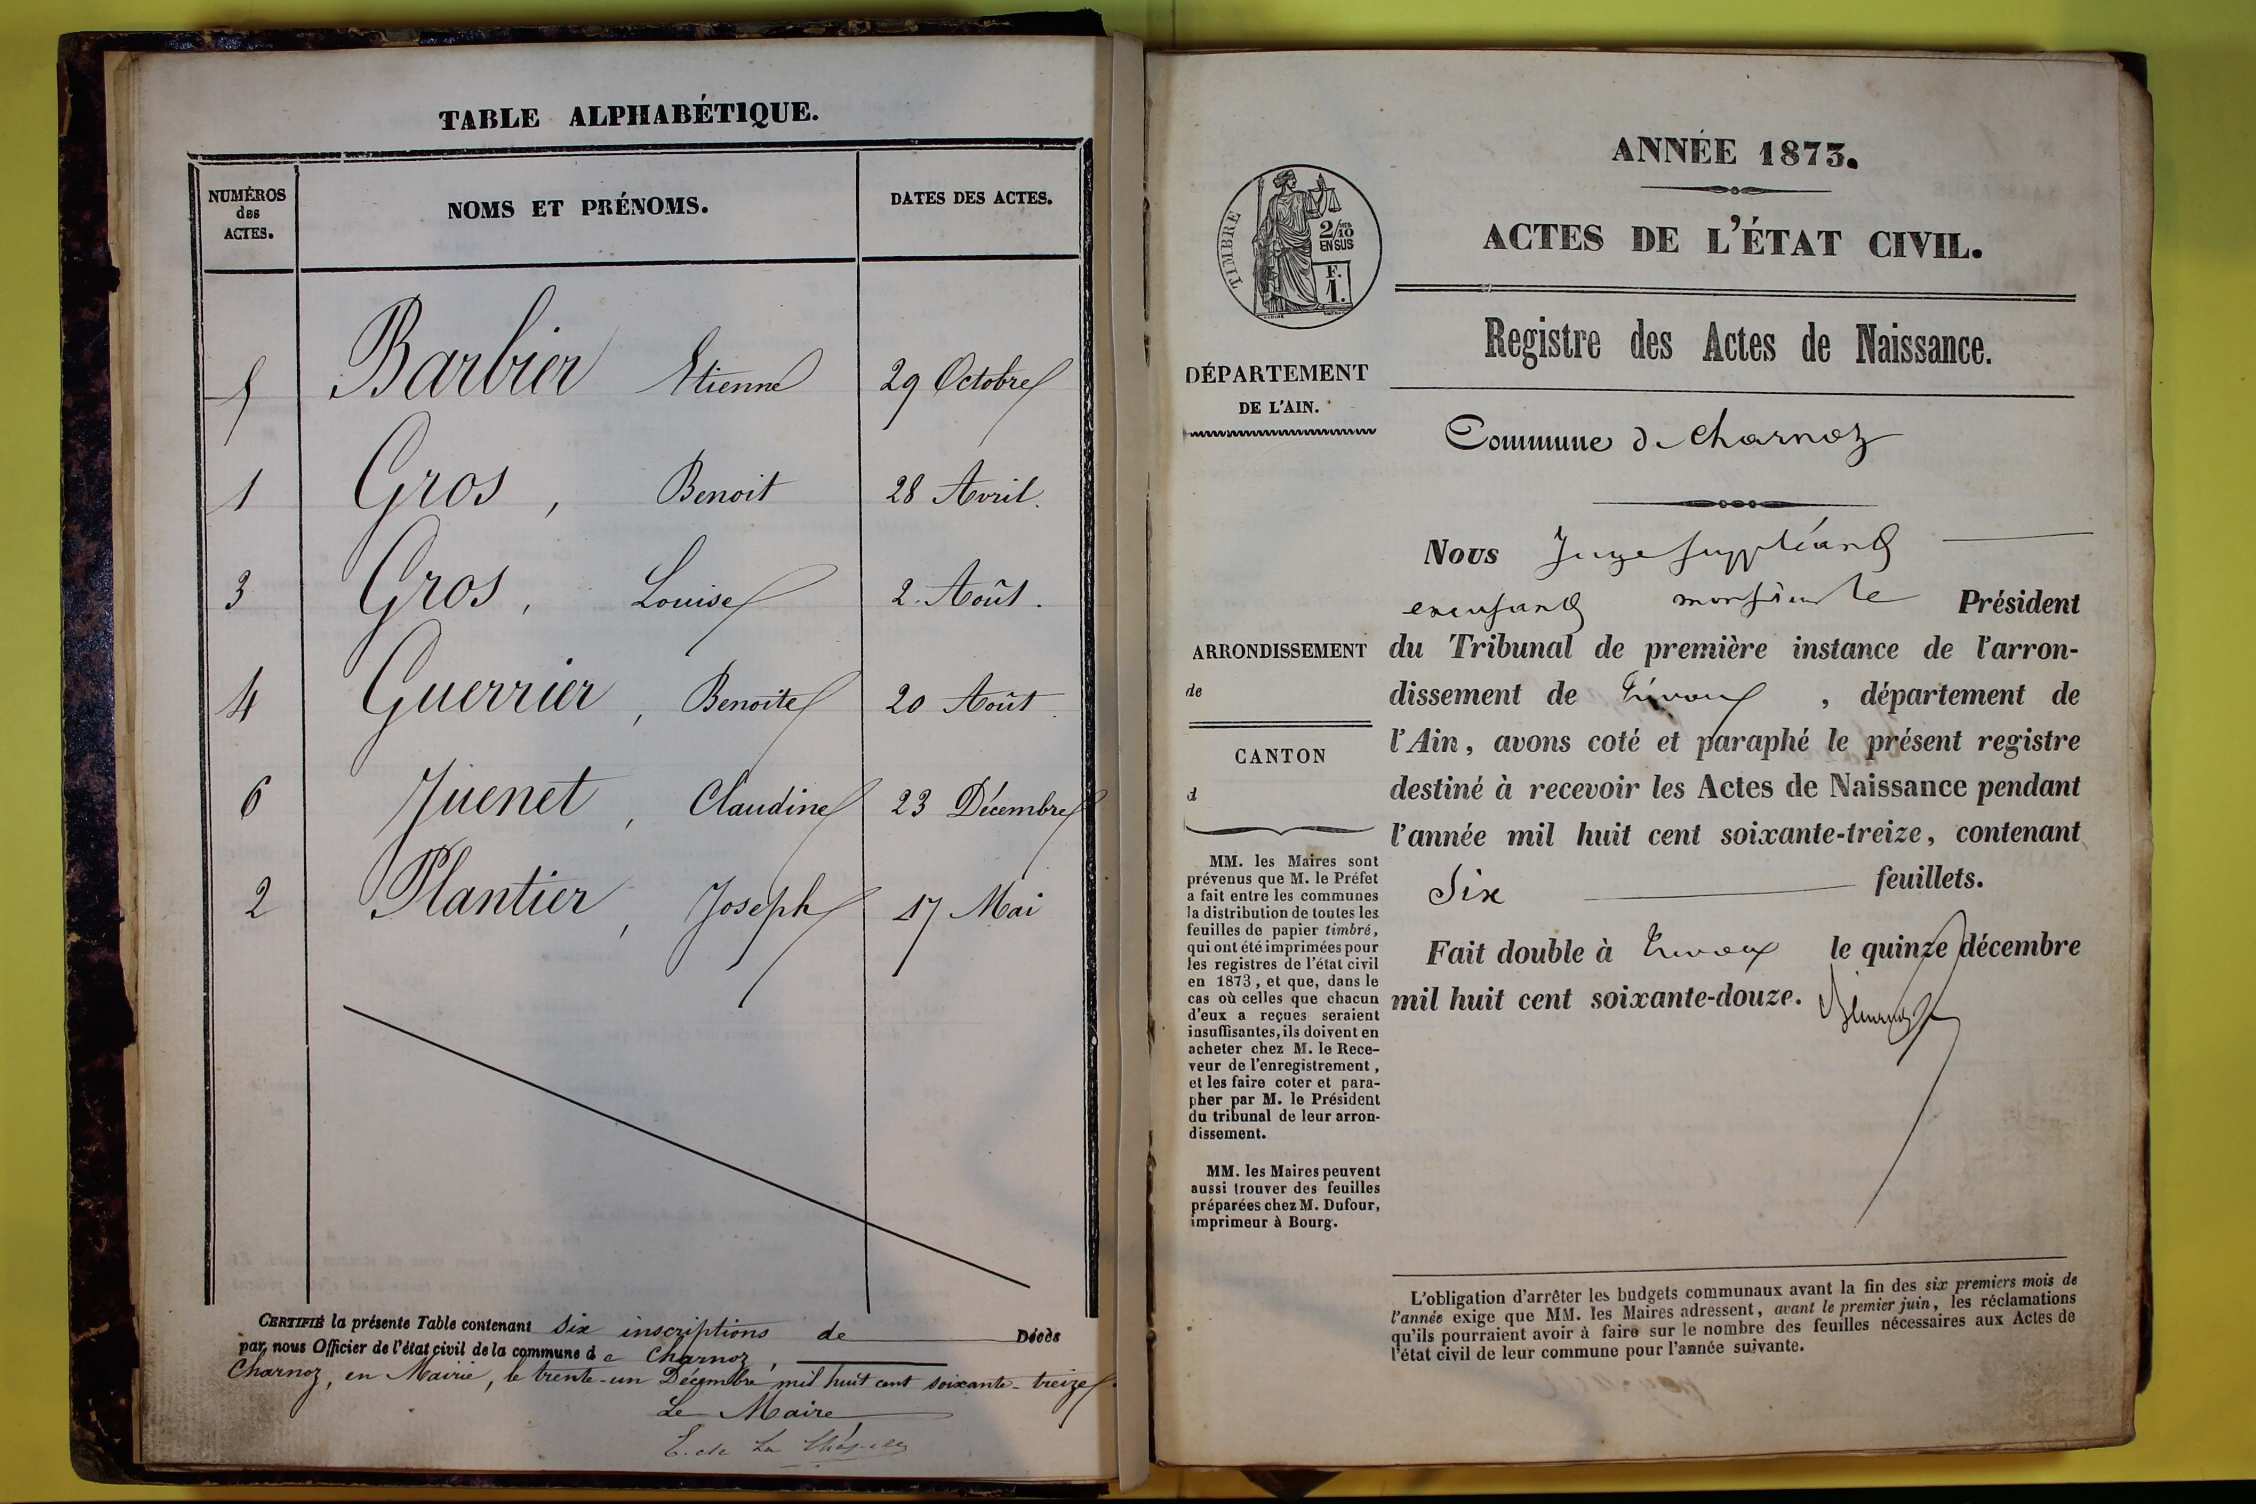 TABLE ALPHABÉTIQUE.
NUMÉROS
des
ACTES.
NOMS ET PRÉNOMS.
DATES DES ACTES.
5 Barbier Etienne 29 Octobre
1 Gros, Benoit 28 Avril.
3 Gros, Louise 2 Août.
4 Guerrier, Benoite 20 Août.
6 Juenet, Claudine 23 Décembre
2 Plantier, Joseph 17 Mai
CERTIFIÉ la présente Table contenant six inscriptions de Décès
par nous Officier de l'état civil de la commune de Charnoz,
Charnoz, en Mairie, le trente-un Décembre mil huit cent soixante-treize.
Le Maire
E. de La
ANNÉE 1873.
ACTES DE L'ÉTAT CIVIL.
TIMBRE
2/10
EN SUS
F.
1.
Registre des Actes de Naissance.
DÉPARTEMENT
DE L'AIN.
Commune de Charnoz
Nous Juge suppléant
Président
ARRONDISSEMENT
de
CANTON
d
du Tribunal de première instance de l'arron-
dissement de Trévoux, département de
l'Ain, avons coté et paraphé le présent registre
destiné à recevoir les Actes de Naissance pendant
l'année mil huit cent soixante-treize, contenant
Six feuillets.
Fait double à Trévoux le quinze décembre
mil huit cent soixante-douze.
MM. les Maires sont
prévenus que M. le Préfet
a fait entre les communes
la distribution de toutes les
feuilles de papier timbré,
qui ont été imprimées pour
les registres de l'état civil
en 1873, et que, dans le
cas où celles que chacun
d'eux a reçues seraient
insuffisantes, ils doivent en
acheter chez M. le Rece-
veur de l'enregistrement,
et les faire coter et para-
pher par M. le Président
du tribunal de leur arron-
dissement.
MM. les Maires peuvent
aussi trouver des feuilles
préparées chez M. Dufour,
imprimeur à Bourg.
L'obligation d'arrêter les budgets communaux avant la fin des six premiers mois de
l'année exige que MM. les Maires adressent, avant le premier juin, les réclamations
qu'ils pourraient avoir à faire sur le nombre des feuilles nécessaires aux Actes de
l'état civil de leur commune pour l'année suivante.